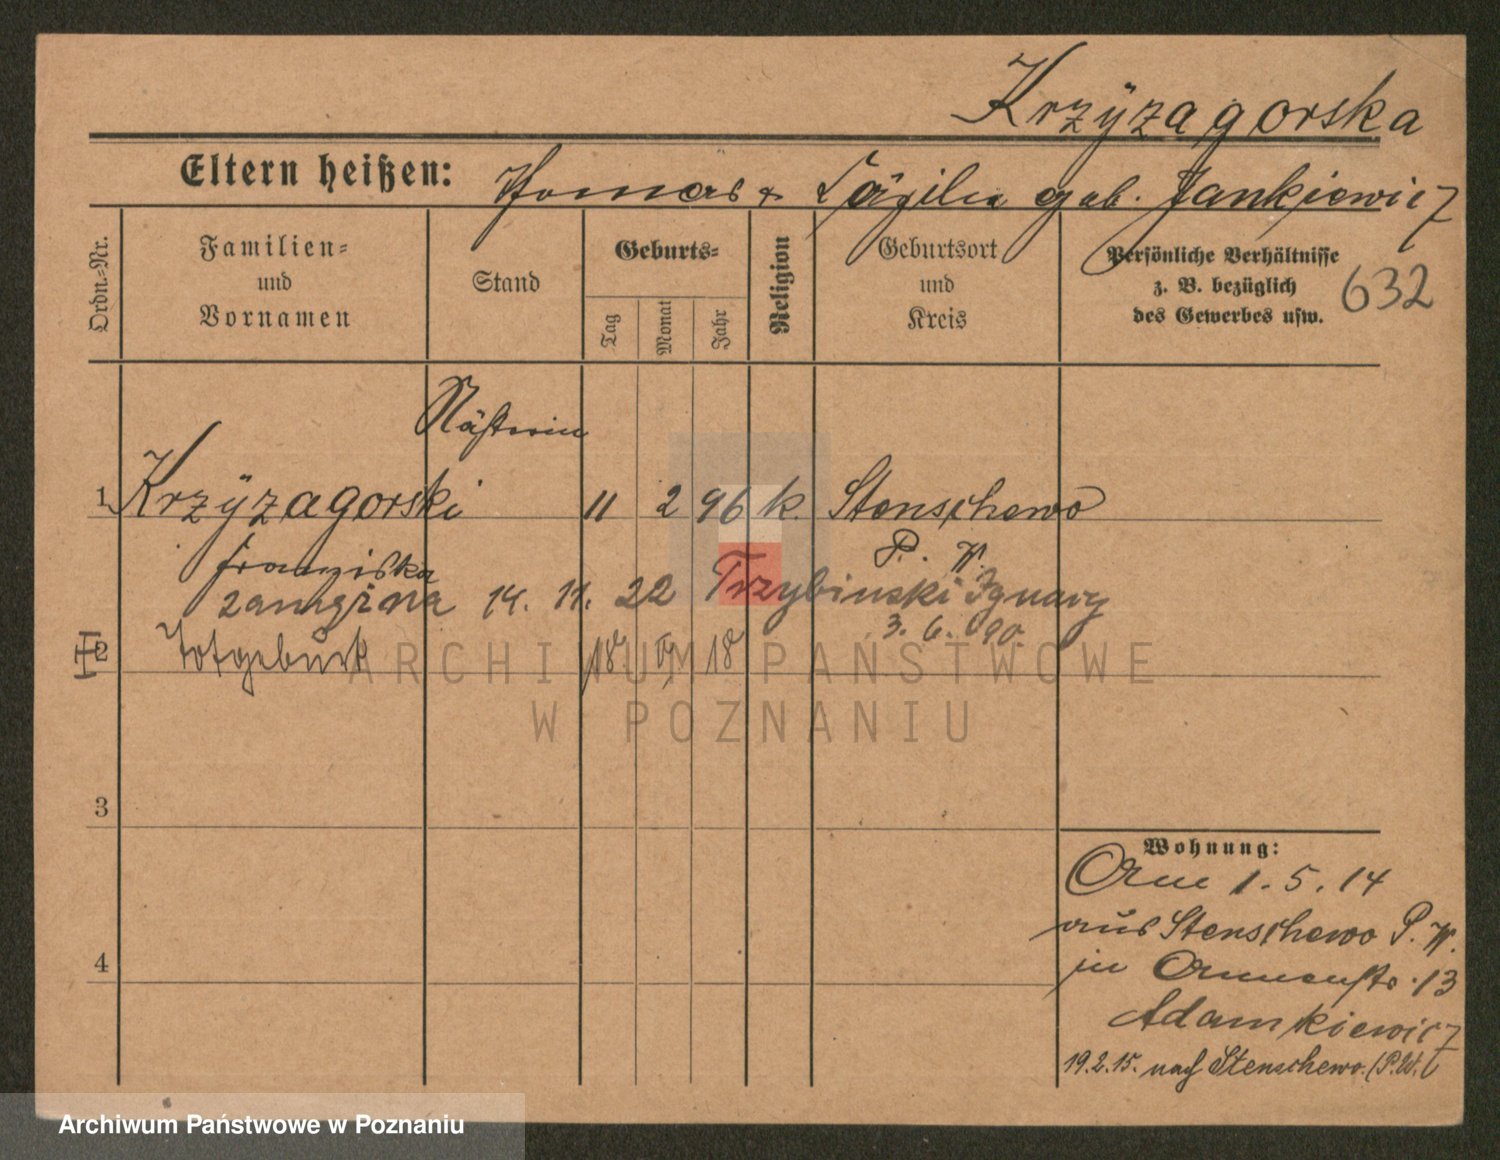 Krzÿzagorska
Eltern heißen: Thomas & Cäzilia geb. Jankiewicz
Ordn.-Nr.
Familien-
und
Vornamen
Stand
Geburts-
Tag
Monat
Jahr
Religion
Geburtsort
und
Kreis
Persönliche Verhältnisse
z. B. bezüglich
des Gewerbes usw.
632
Nähterin
1 Krzÿzagorski 11 2 96 k. Stenschewo
Franziska P. W.
zamężna 14. 11. 22 Trzybinski Ignacy
3. 6. 90
2 Totgeburt 18 9 18
3
4
Wohnung:
Am 1. 5. 14
aus Stenschewo P. W.
in 13
Adamkiewicz
19.2.15. nach Stenschewo. (P.W.)
ARCHIWUM PAŃSTWOWE
W POZNANIU
Archiwum Państwowe w Poznaniu